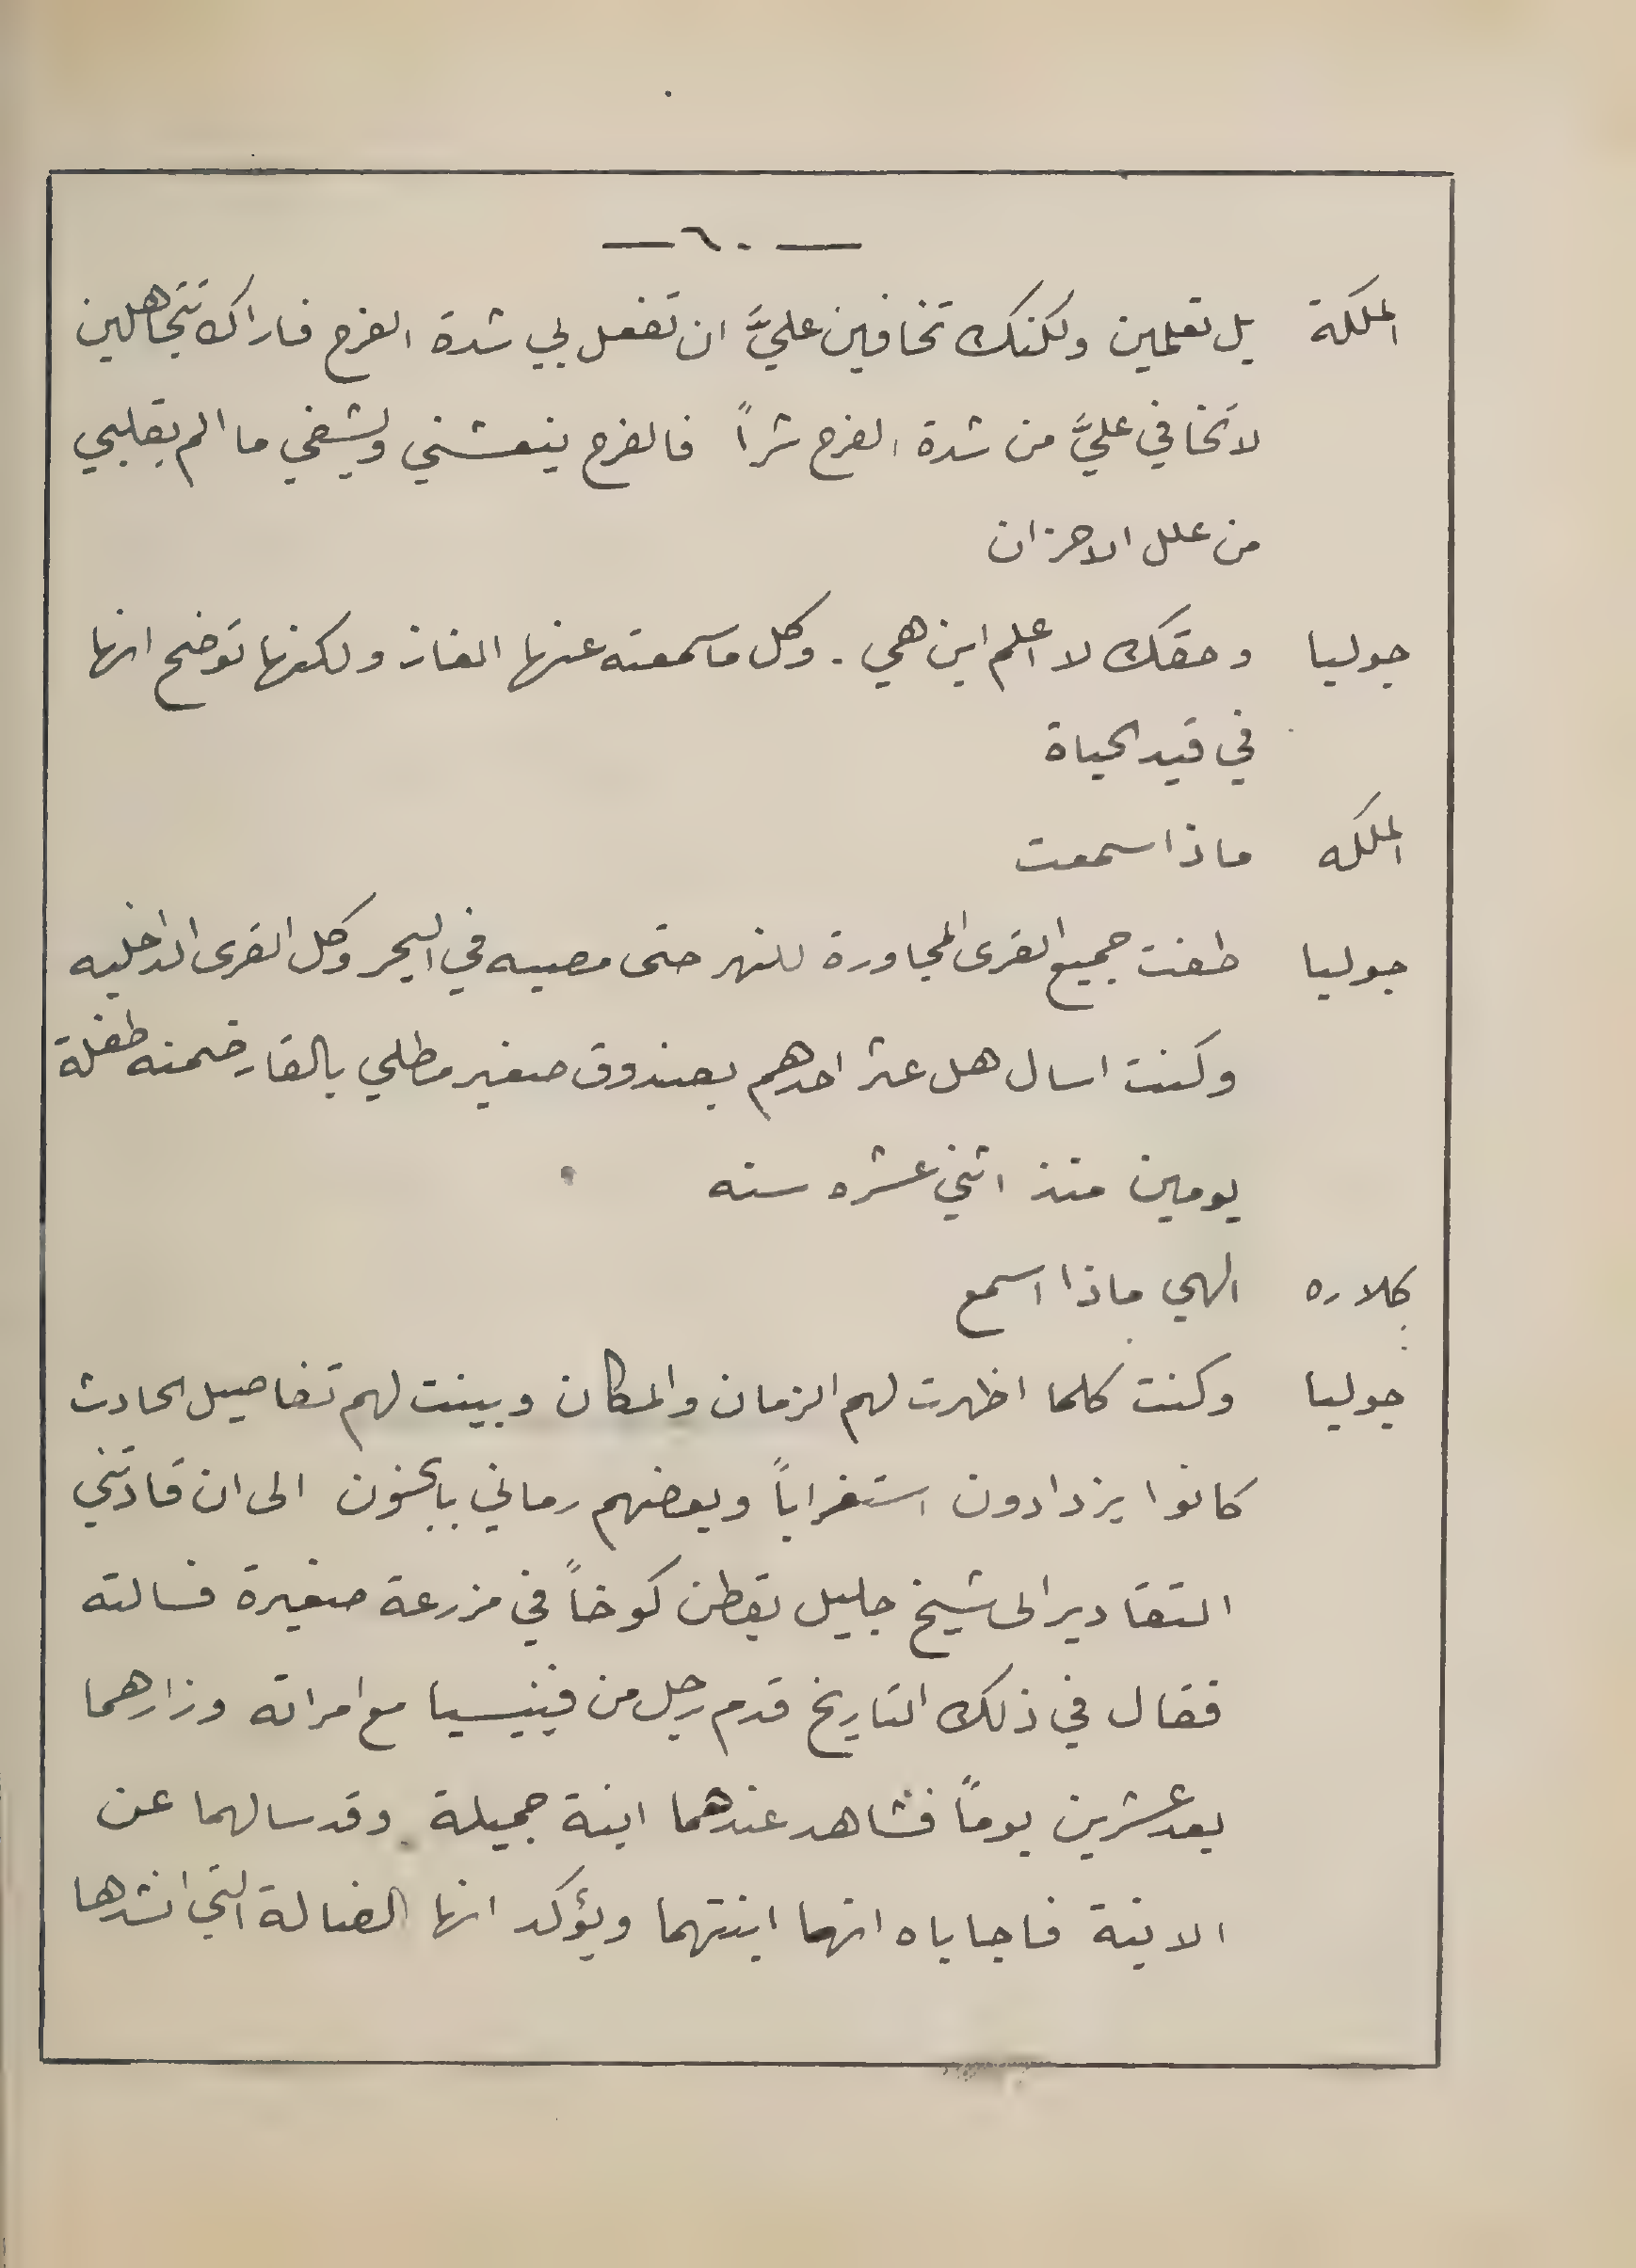 — ٦٠ —
الملكة بل تعلمين ولكنك تخافين عليَّ ان تفعل بي شدة الفرح فاراك تتجاهلين
لا تخافي عليَّ من شدة الفرح شراً فالفرح ينعشني ويشفي ما الم بقلبي
من علل الاحزان
جوليا وحقك لا اعلم اين هي . وكل ما سمعته عنها الغاز ولكنها توضح انها
في قيد الحياة
الملكه ماذا سمعت
جوليا طفت جميع القرى المجاورة للنهر حتى مصبه في البحر وكل القرى الداخليه
وكنت اسال هل عثر احدهم بصندوق صغير مطلي بالقار ضمنه طفلة
يومين منذ اثني عشره سنه
كلاره الهي ماذا اسمع
جوليا وكنت كلما اظهرت لهم الزمان والمكان وبينت لهم تفاصيل الحادث
كانوا يزدادون استغراباً وبعضهم رماني بالجنون الى ان قادتني
التقادير الى شيخ جليل يقطن كوخاً في مزرعة صغيرة فسالته
فقال في ذلك التاريخ قدم رجل من فينيسيا مع امراته وزارهما
بعد عشرين يوماً فشاهد عندهما ابنة جميلة وقد سالهما عن
الابنة فاجاباه انها ابنتهما ويؤكد انها الضالة التي انشدها